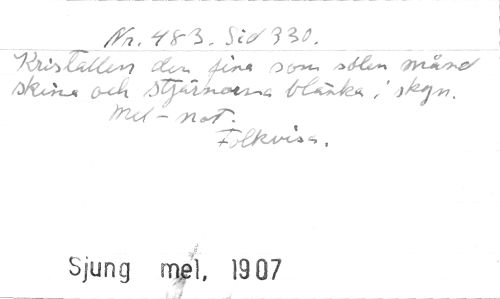 Nr. 483. Sid 330.
Kristallen den fina som solen månd
skina och stjärnorna blänka i skyn.
Mel-not.
Folkvisa.
Sjung mel, 1907